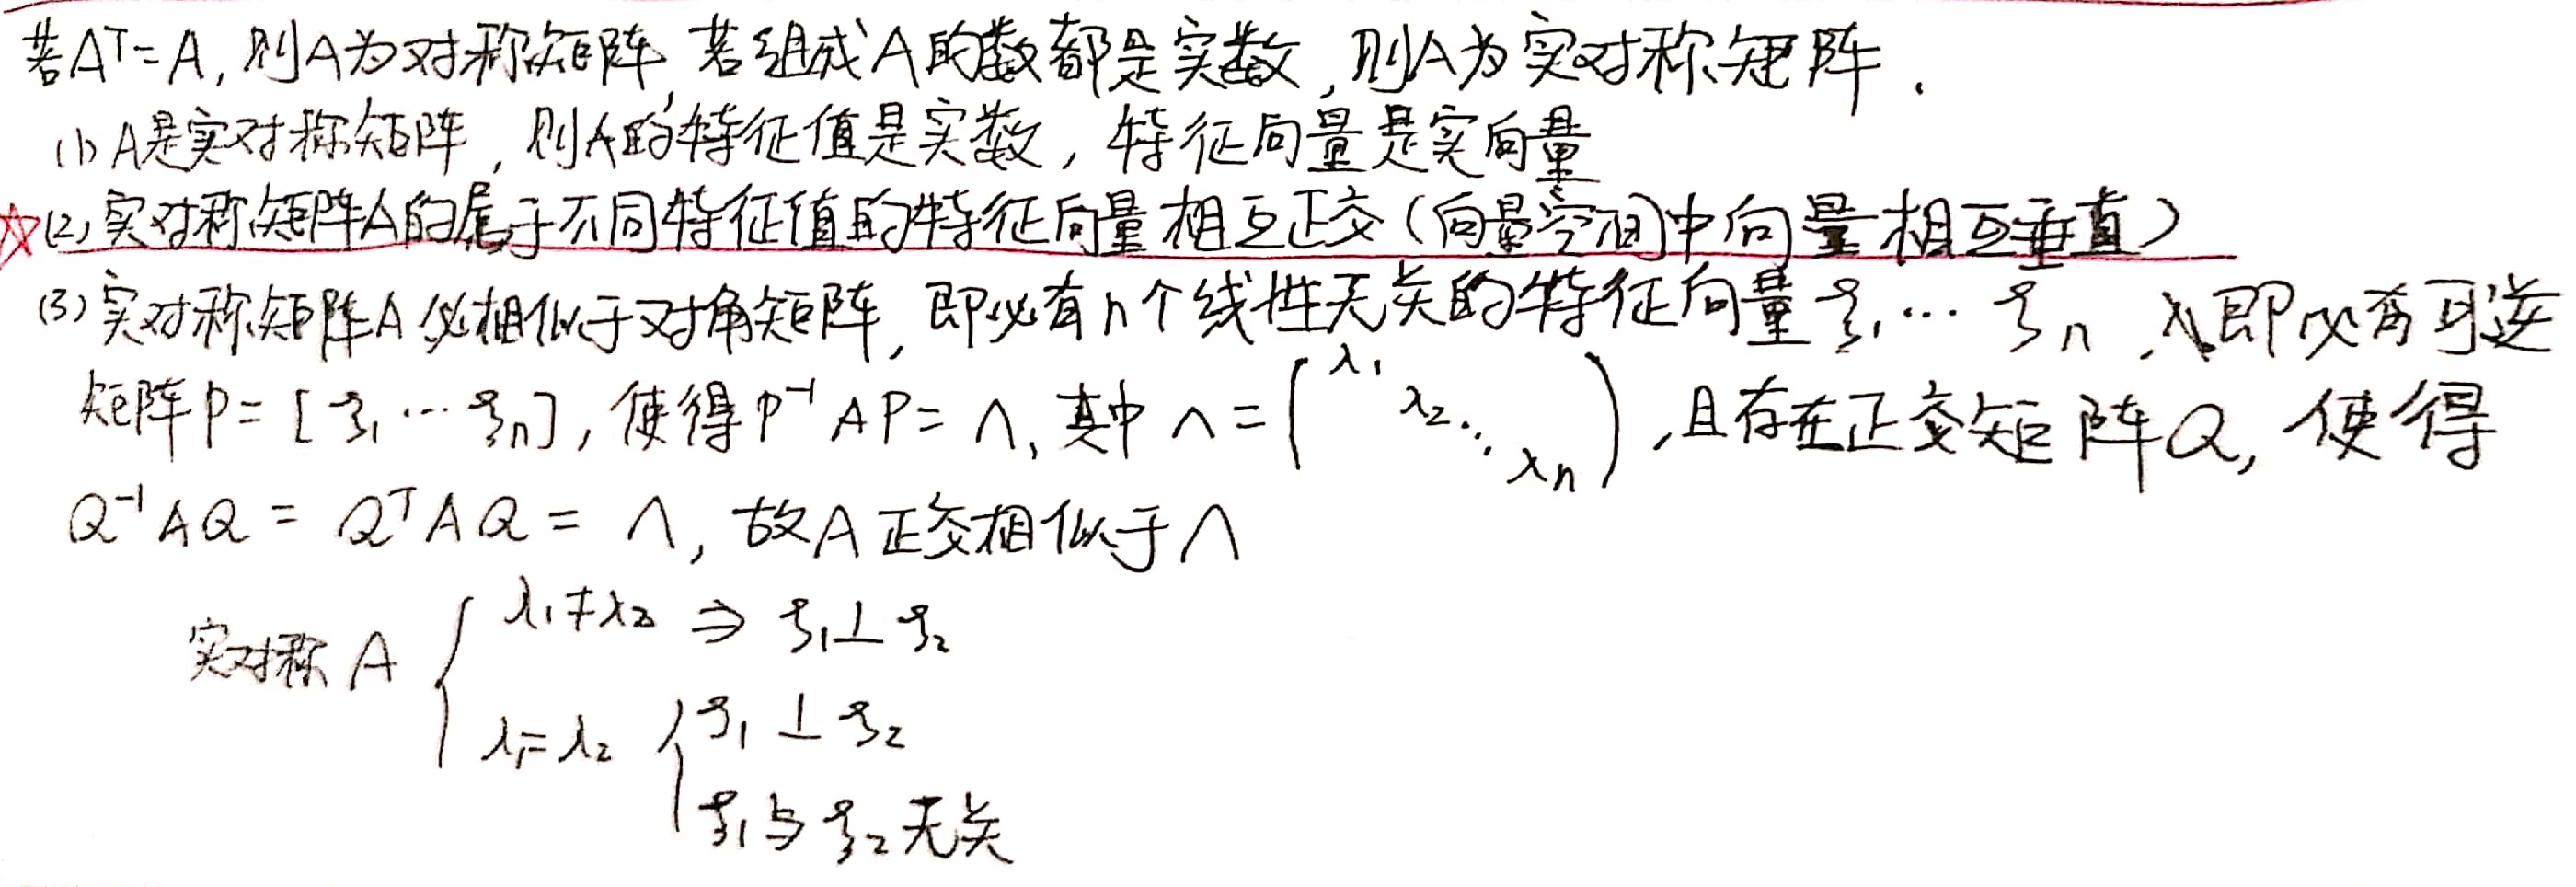 若Aᵀ=A, 则A为对称矩阵, 若组成A的数都是实数, 则A为实对称矩阵.
(1) A是实对称矩阵, 则A的特征值是实数, 特征向量是实向量
☆(2) 实对称矩阵A的属于不同特征值的特征向量相互正交(向量空间中向量相互垂直)
(3) 实对称矩阵A必相似于对角矩阵, 即必有n个线性无关的特征向量ξ₁…ξₙ, 即必有可逆
矩阵P=[ξ₁…ξₙ], 使得P⁻¹AP=Λ, 其中Λ=(λ₁ λ₂ ⋱ λₙ), 且存在正交矩阵Q, 使得
Q⁻¹AQ = QᵀAQ = Λ, 故A正交相似于Λ
实对称A { λ₁≠λ₂ ⇒ ξ₁⊥ξ₂
λ₁=λ₂ { ξ₁⊥ξ₂
ξ₁与ξ₂无关